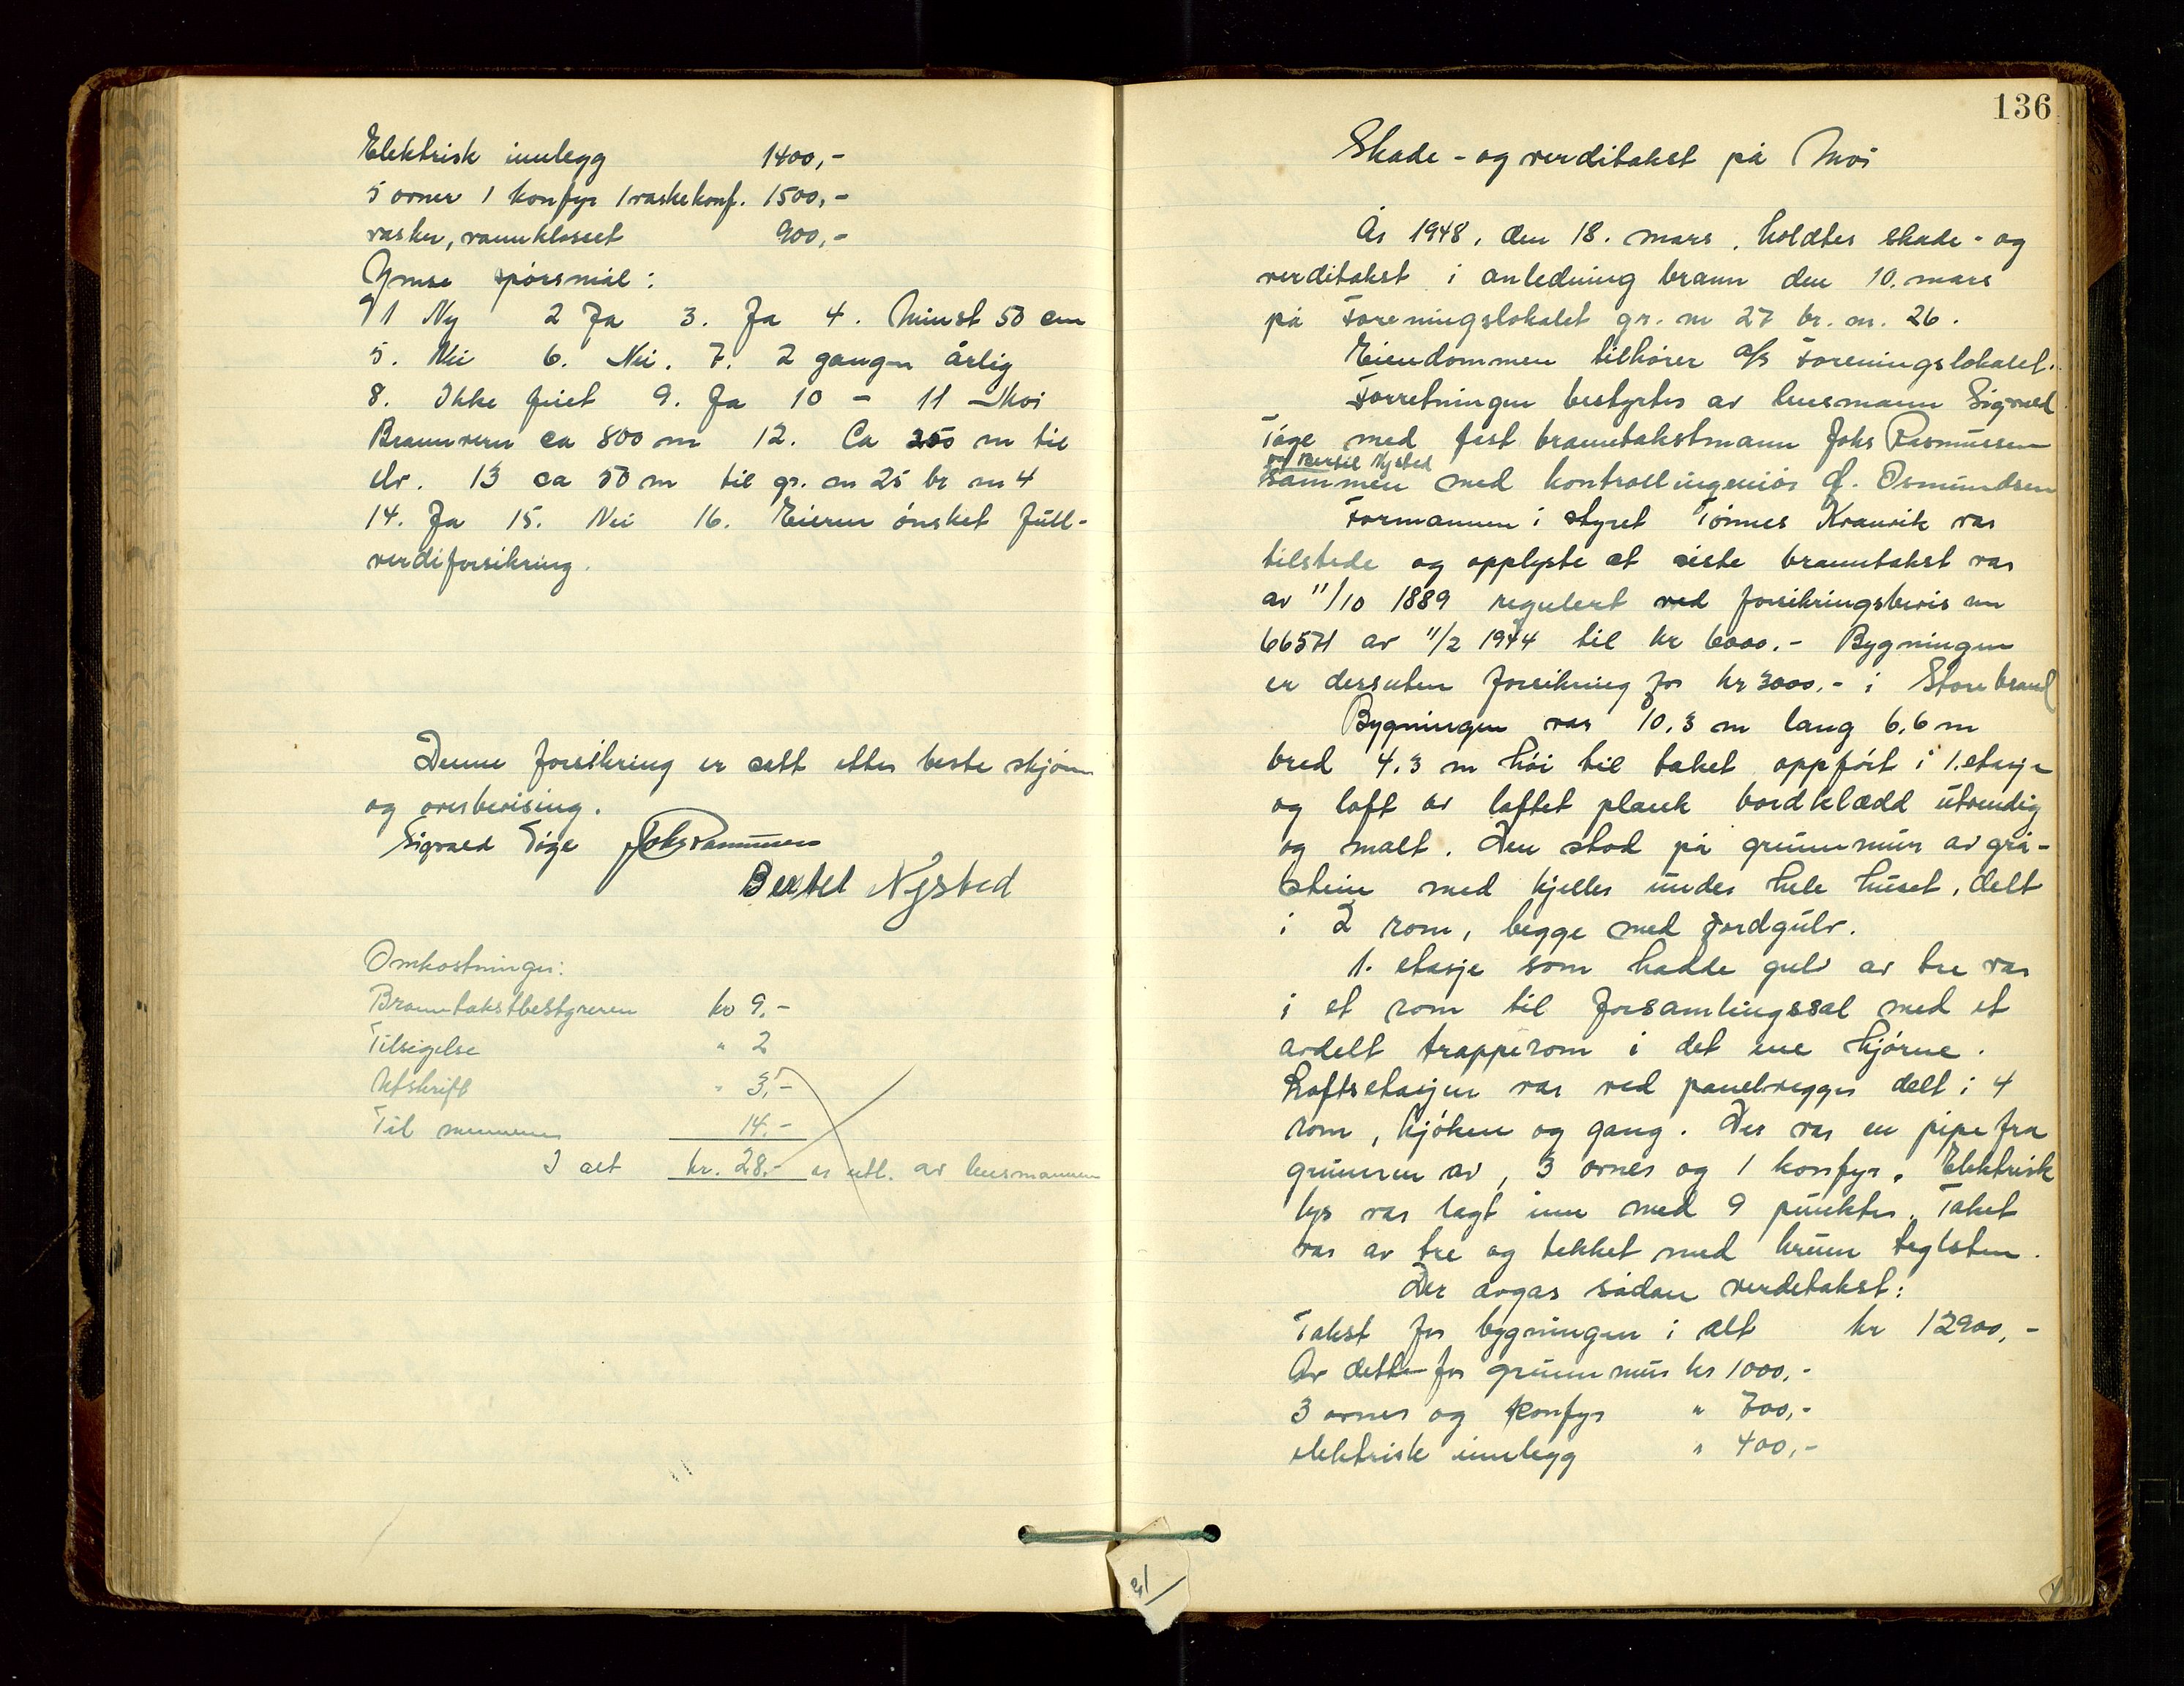 Elektrisk innlegg 1400,-
5 ovner 1 konfyr 1 vaskekonf. 1500,-
vasker, vannkloset 900,-
Ymse spörsmål:
1 Ny 2 Ja 3. Ja 4. Minst 50 cm
5. Nei 6. Nei. 7. 2 ganger årlig
8. Ikke feiet 9. Ja 10 - 11 Moi
Brannvern ca 800 m 12. Ca 250 m til
elv. 13 ca 50 m til gr. nr 25 br nr 4
14. Ja 15. Nei 16. Eieren önsket full-
verdiforsikring.
Denne forsikring er satt etter beste skjönn
og overbevising.
Sigvald Töge Johs Rasmussen
Bertel Nysted
Omkostninger:
Branntakstbestyreren kr 9.-
Tilsigelse " 2
Utskrift " 3,-
Til mennene 14.-
I alt kr. 28.- er utl. av lensmannen
136
Skade- og verditakst på Moi
År 1948, den 18. mars, holdtes skade- og
verditakst i anledning brann den 10. mars
på Foreningslokalet gr. nr 27 br. nr. 26.
Eiendommen tilhörer A/S Foreningslokalet.
Forretningen bestyrtes av lensmann Sigvald
Töge med fast branntakstmann Johs Rasmussen
og Bertel Nysted
sammen med kontrollingeniör Osmundsen
Formannen i styret Tönnes Kranvik var
tilstede og opplyste at siste branntakst var
av 11/10 1889 regulert ved forsikringsbevis nr
66571 av 11/2 1944 til kr 6000.- Bygningen
er dersuten forsikring for kr 3000.- i Storebrand
Bygningen var 10.3 m lang 6,6 m
bred 4.3 m höi til taket oppfört i 1. etasje
og loft av laftet plank bordklædd utvendig
og malt. Den stod på grunnmur av grå-
stein med kjeller under hele huset, delt
i 2 rom, begge med jordgulv.
1. etasje som hadde gulv av tre var
i et rom til forsamlingssal med et
avdelt trapperom i det ene hjörne.
Loftsetasjen var ved panelvegger delt i 4
rom, kjöken og gang. Der var en pipe fra
grunnen av, 3 ovner og 1 konfyr. Elektrisk
lys var lagt inn med 9 punkter. Taket
var av tre og tekket med krum teglsten.
Der avgas sådan verdetakst:
Takst for bygningen i alt kr 12900,-
Av dette for grunnmur kr 1000,-
3 ovner og konfyr " 700,-
elektrisk innlegg " 400,-